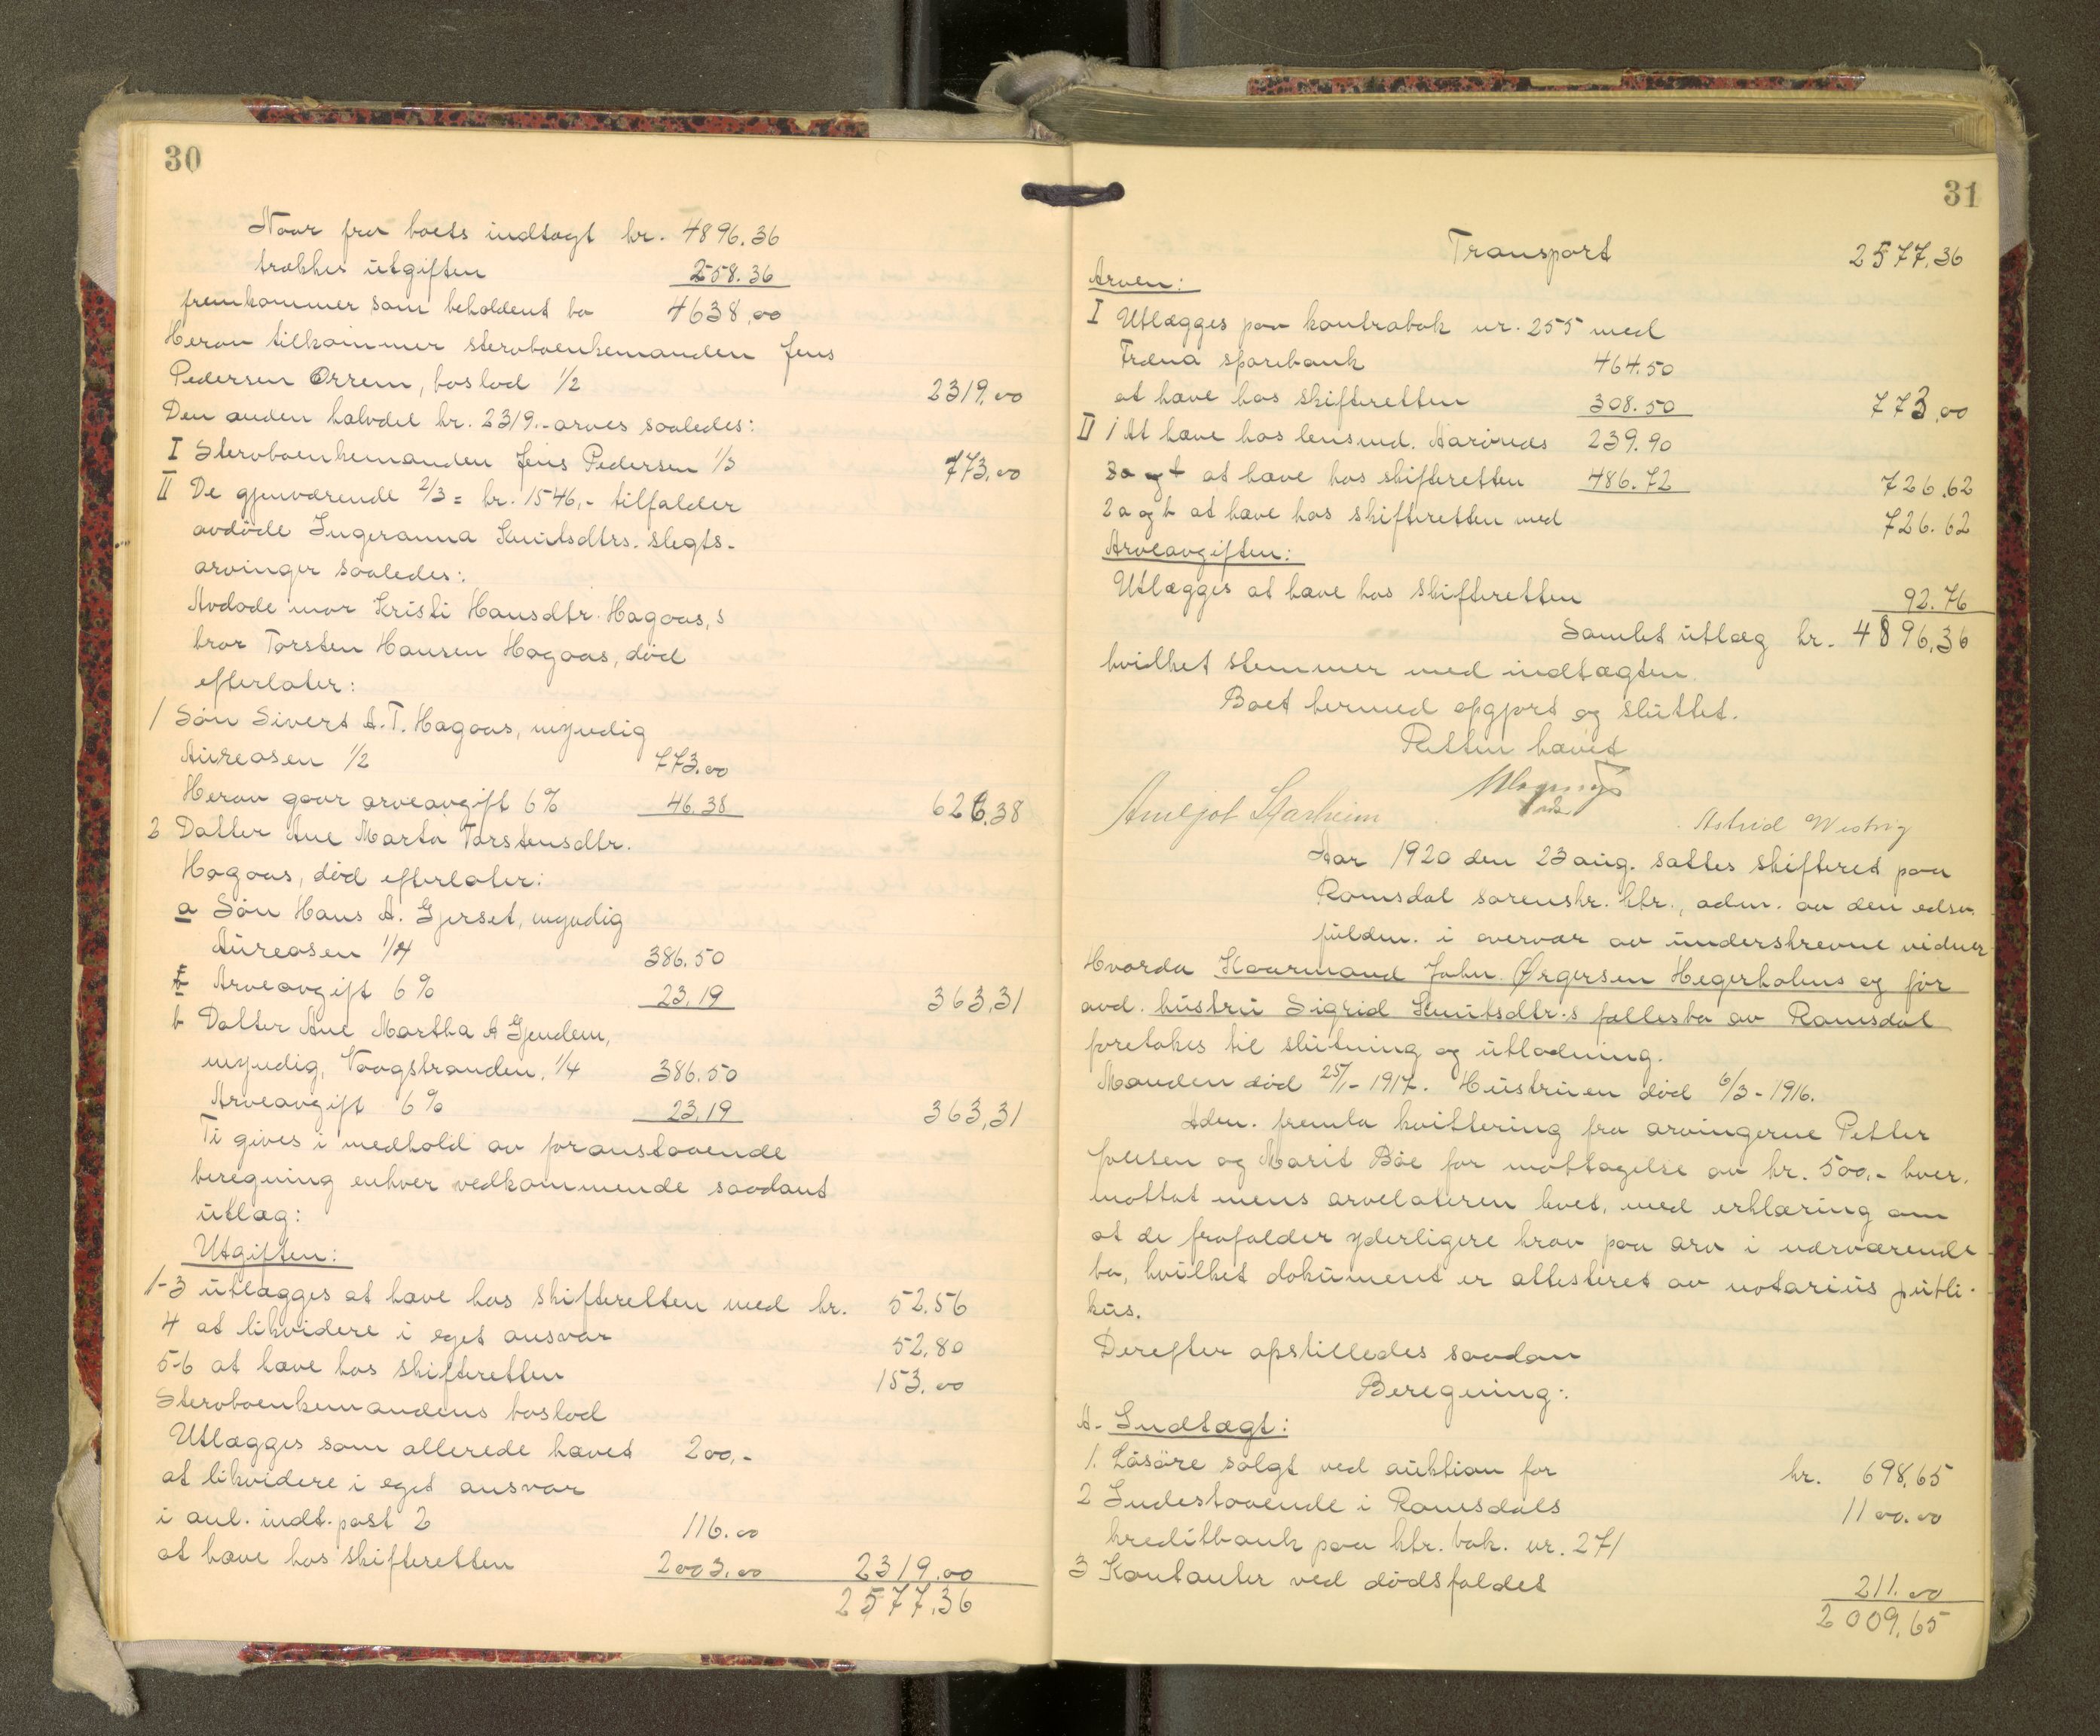 30
Naar fra boets indtægt kr. 4896.36
trækkes utgiften 258.36
fremkommer som beholdent bo 4638,00
Herav tilkommer stervboenkemanden Jens
Pedersen Orrem, boslod 1/2 2319,00
Den anden halvdel kr. 2319.- arves saaledes:
I Stervboenkemanden Jens Pedersen 1/3 773,00
II De gjenværende 2/3 = kr. 1546,- tilfalder
avdöde Ingeranna Knutsdtrs. slegts-
arvinger saaledes:
Avdöde mor Kristi Hansdtr. Hagaas, s
bror Torsten Hansen Hagaas, död
efterlater:
1 Sön Sivert A.T. Hagaas, myndig
Aureosen 1/2 773.00
Herav gaar arveavgift 6% 46.38 626,38
2 Datter Ane Marta Torstensdtr.
Hagaas, död efterlater:
a Sön Hans A. Gjerset, myndig
Aureosen 1/4 386.50
Arveavgift 6% 23.19 363,31
b Datter Ane Martha A Gjendem,
myndig, Vaagstranden, 1/4 386.50
Arveavgift 6% 23.19 363,31
Ti gives i medhold av foranstaaende
beregning enhver vedkommende saadant
utlæg:
Utgiften:
1-3 utlægges at hæve hos skifteretten med kr. 52.56
4 at likvidere i eget ansvar 52.80
5-6 at hæve hos skifteretten 153.00
Stervboenkemandens boslod
Utlægges som allerede hævet 200,-
at likvidere i eget ansvar
i anl. indt. post 2 116.00
at hæve hos skifteretten 2003.00 2319.00
2577,36
31
Transport 2577,36
Arven:
I Utlægges paa kontrabok nr. 255 med
Fræna sparebank 464.50
at hæve hos skifteretten 308.50 773,00
II 1 At hæve hos lensmd. Aarönæs 239.90
at hæve hos skifteretten 486.72 726.62
2 a og b at hæve hos skifteretten med 726.62
Arveavgiften:
Utlægges at hæve hos skifteretten 92.76
Samlet utlæg kr. 4896,36
hvilket stemmer med indtægten.
Boet hermed opgjort og sluttet.
Retten hævet
Arnljot Skarheim
Astrid Westvig
Aar 1920 den 23 aug. sattes skifteret paa
Romsdal sorenskr. ktr., adm. av den edsv.
fuldm. i overvær av underskrevne vidner
Hvorda Kaarmand John Ørgersen Hegerholms og før
avd. hustru Sigrid Knutsdtr.s fællesbo av Romsdal
foretakes til slutning og utlodning.
Manden död 25/1-1917. Hustruen död 6/3-1916.
Adm. fremla kvittering fra arvingerne Petter
Joelsen og Marit Böe for mottagelse av kr. 500,- hver,
mottat mens arvelateren levet, med erklæring om
at de frafalder yderligere krav paa arv i nærværende
bo, hvilket dokument er attesteret av notarius publi-
kus.
Derefter opstilledes saadan
Beregning:
A. Indtægt:
1. Lösöre solgt ved auktion for kr. 698,65
2 Indestaaende i Romsdals 1100.00
kreditbank paa ktr. bok. nr. 271
3 Kontanter ved dödsfaldet 211.00
2009,65